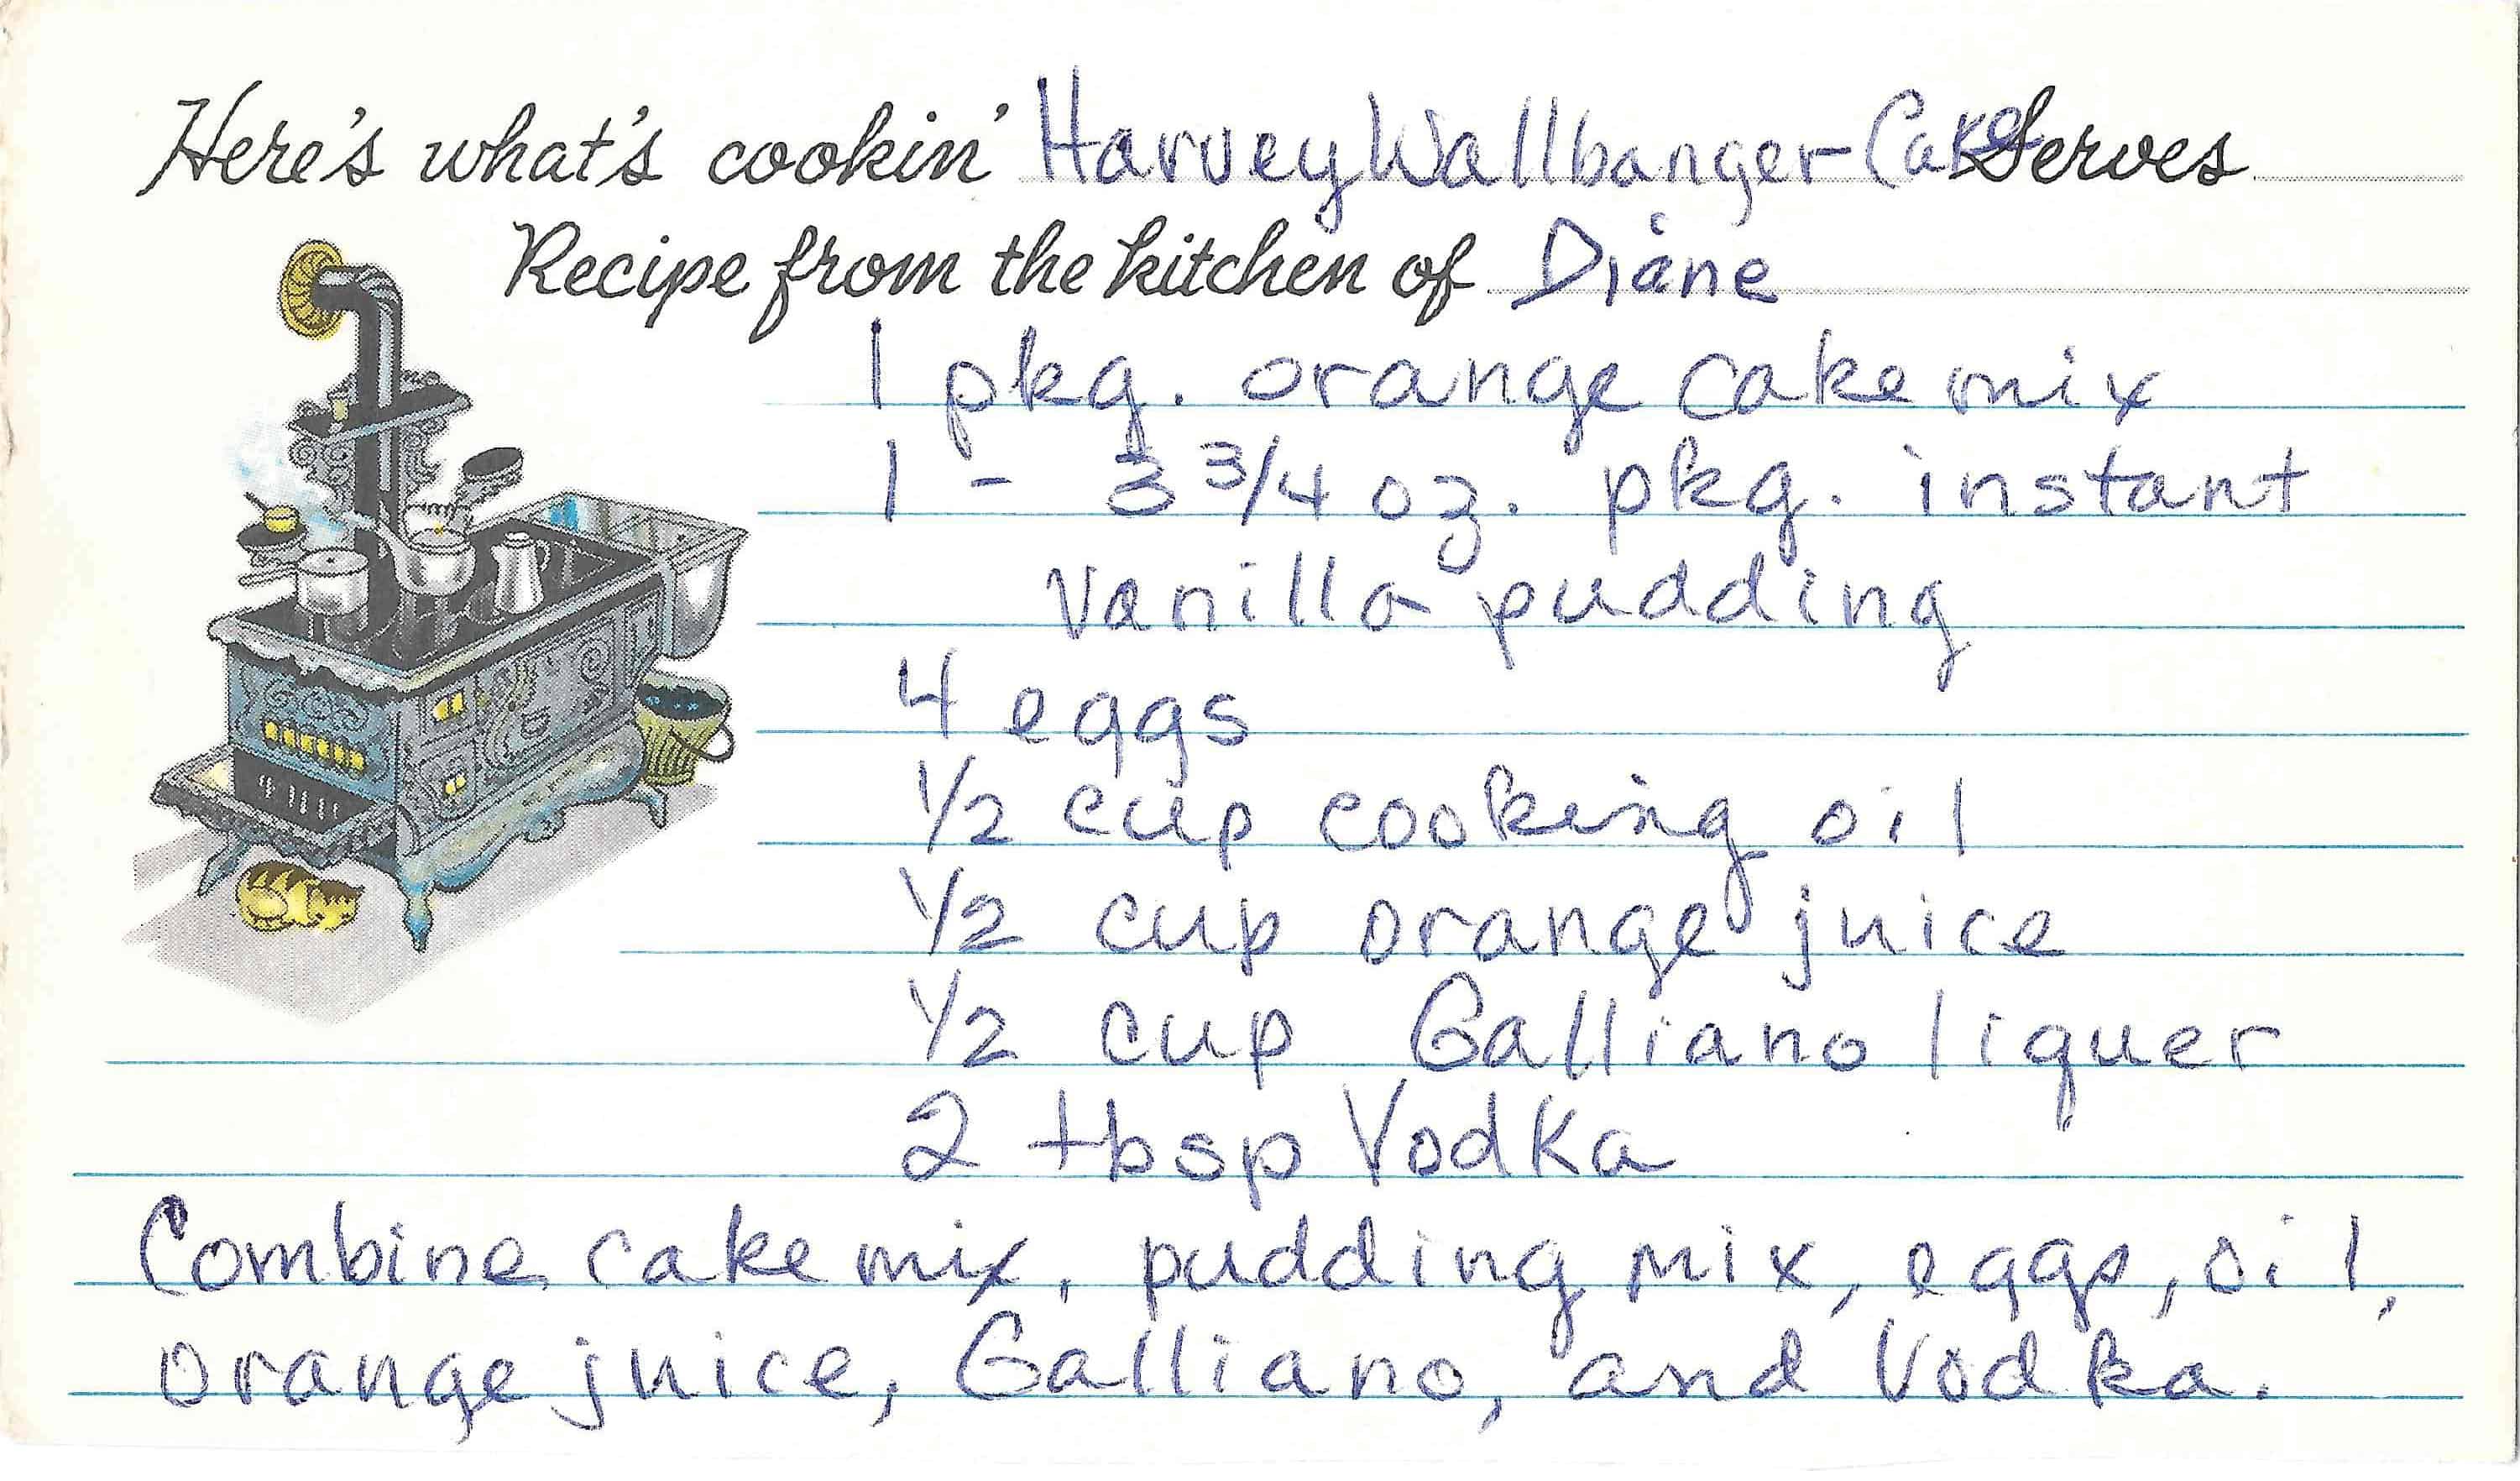 Here's what's cookin' Harvey Wallbanger Cake Serves
Recipe from the kitchen of Diane
1 pkg. orange cake mix
1 - 3 3/4 oz. pkg. instant
vanilla pudding
4 eggs
1/2 cup cooking oil
1/2 cup orange juice
1/2 cup Galliano liquer
2 tbsp Vodka
Combine cake mix, pudding mix, eggs, oil,
orange juice, Galliano, and Vodka.